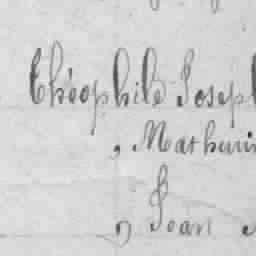 Théophile Joseph
, Mathurin
, Jean